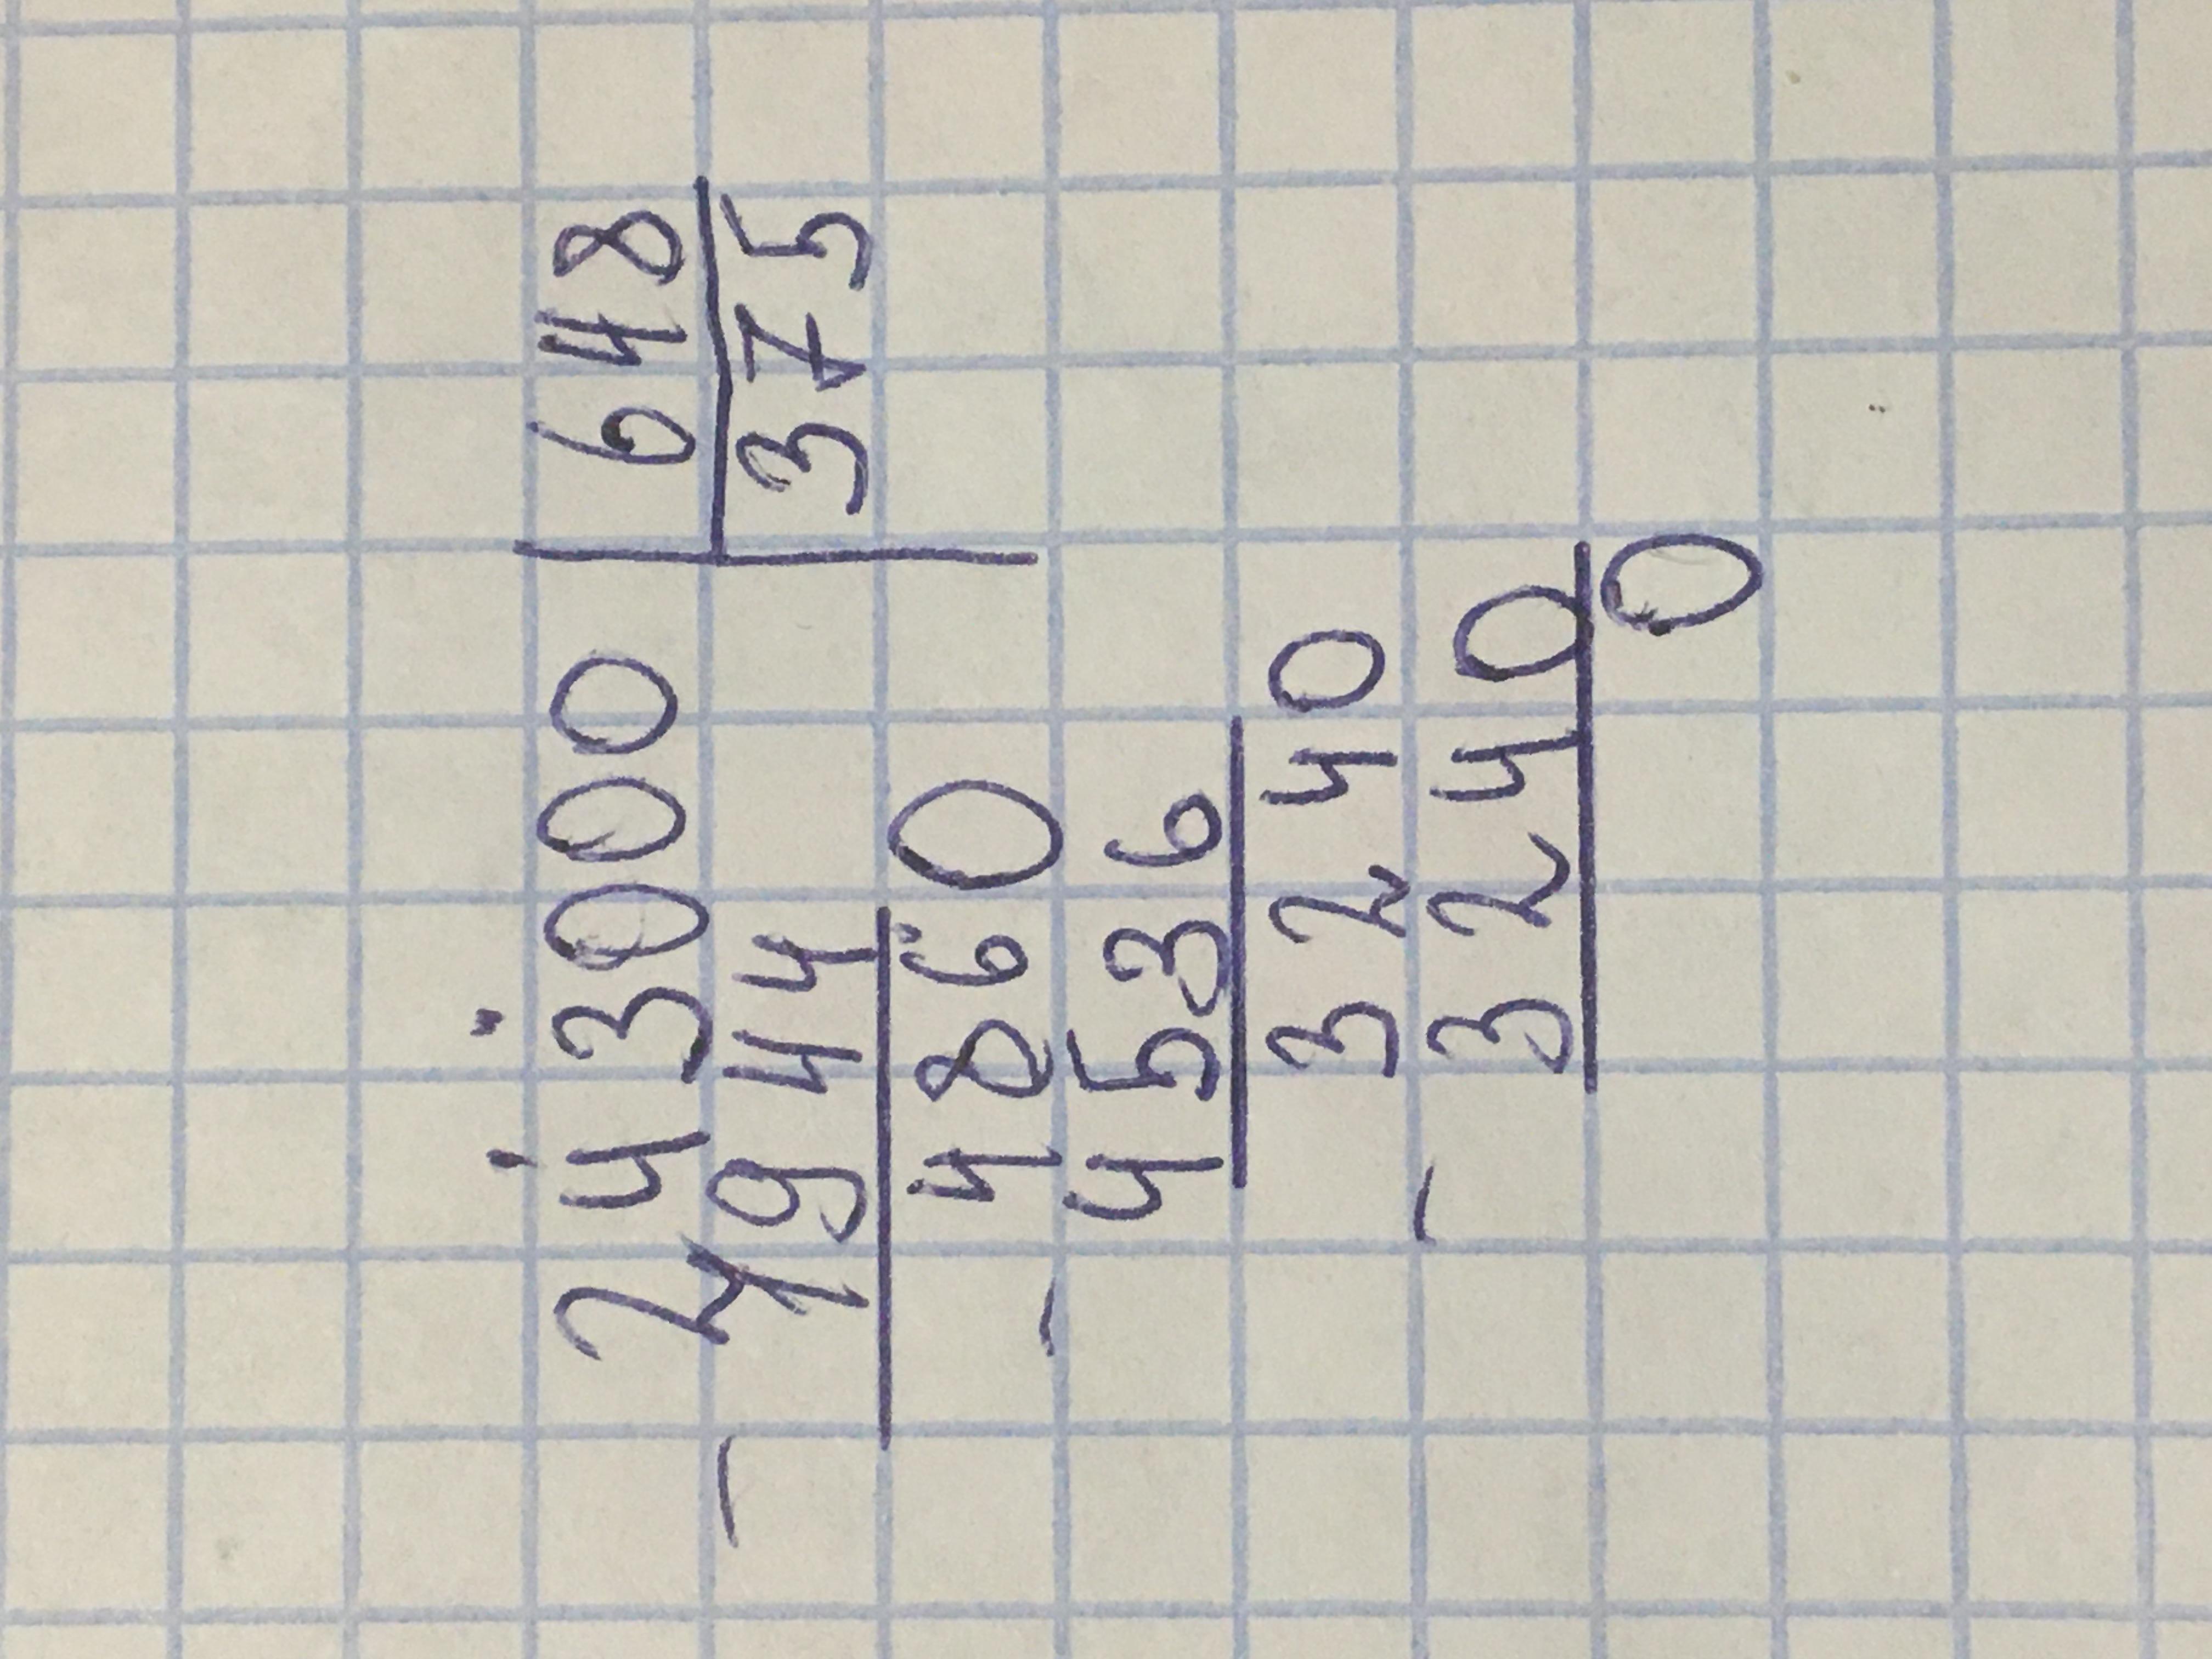 243000 | 648
- 1944 | 375
4860
- 4536
3240
- 3240
0